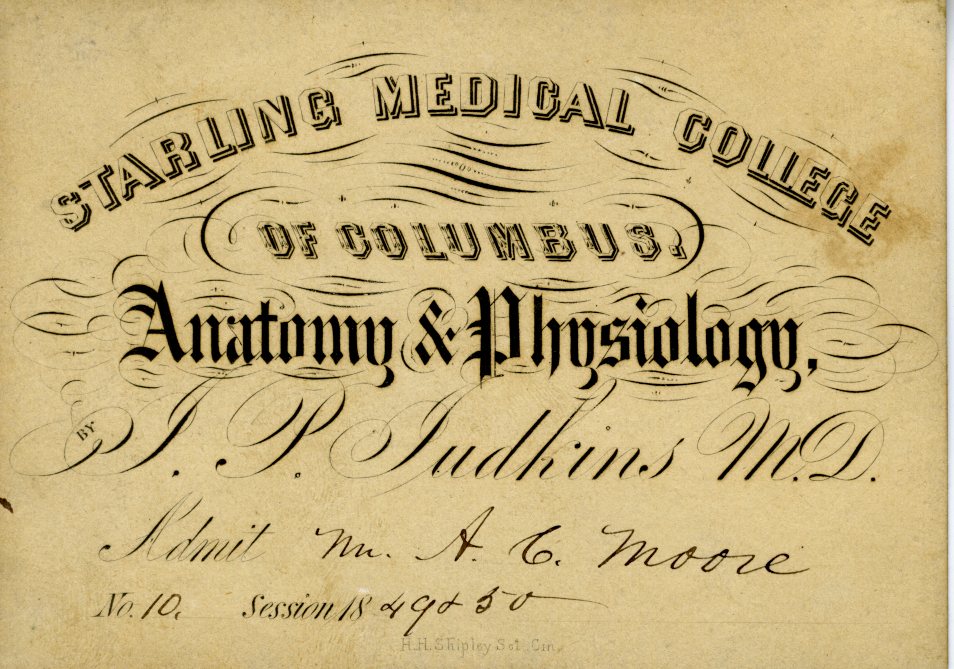 STARLING MEDICAL COLLEGE
OF COLUMBUS.
Anatomy & Physiology,
BY J. P. Judkins M.D.
Admit Mr. A. C. Moore
No. 10. Session 1849 & 50
H.H. Shipley Sct. Cin.